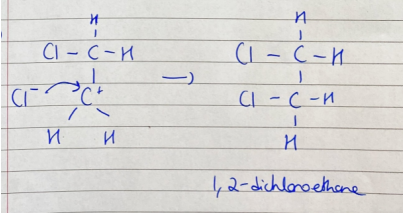 H H
Cl - C - H → Cl - C - H
Cl⁻ C⁺ Cl - C - H
H H H
1,2-dichloroethane